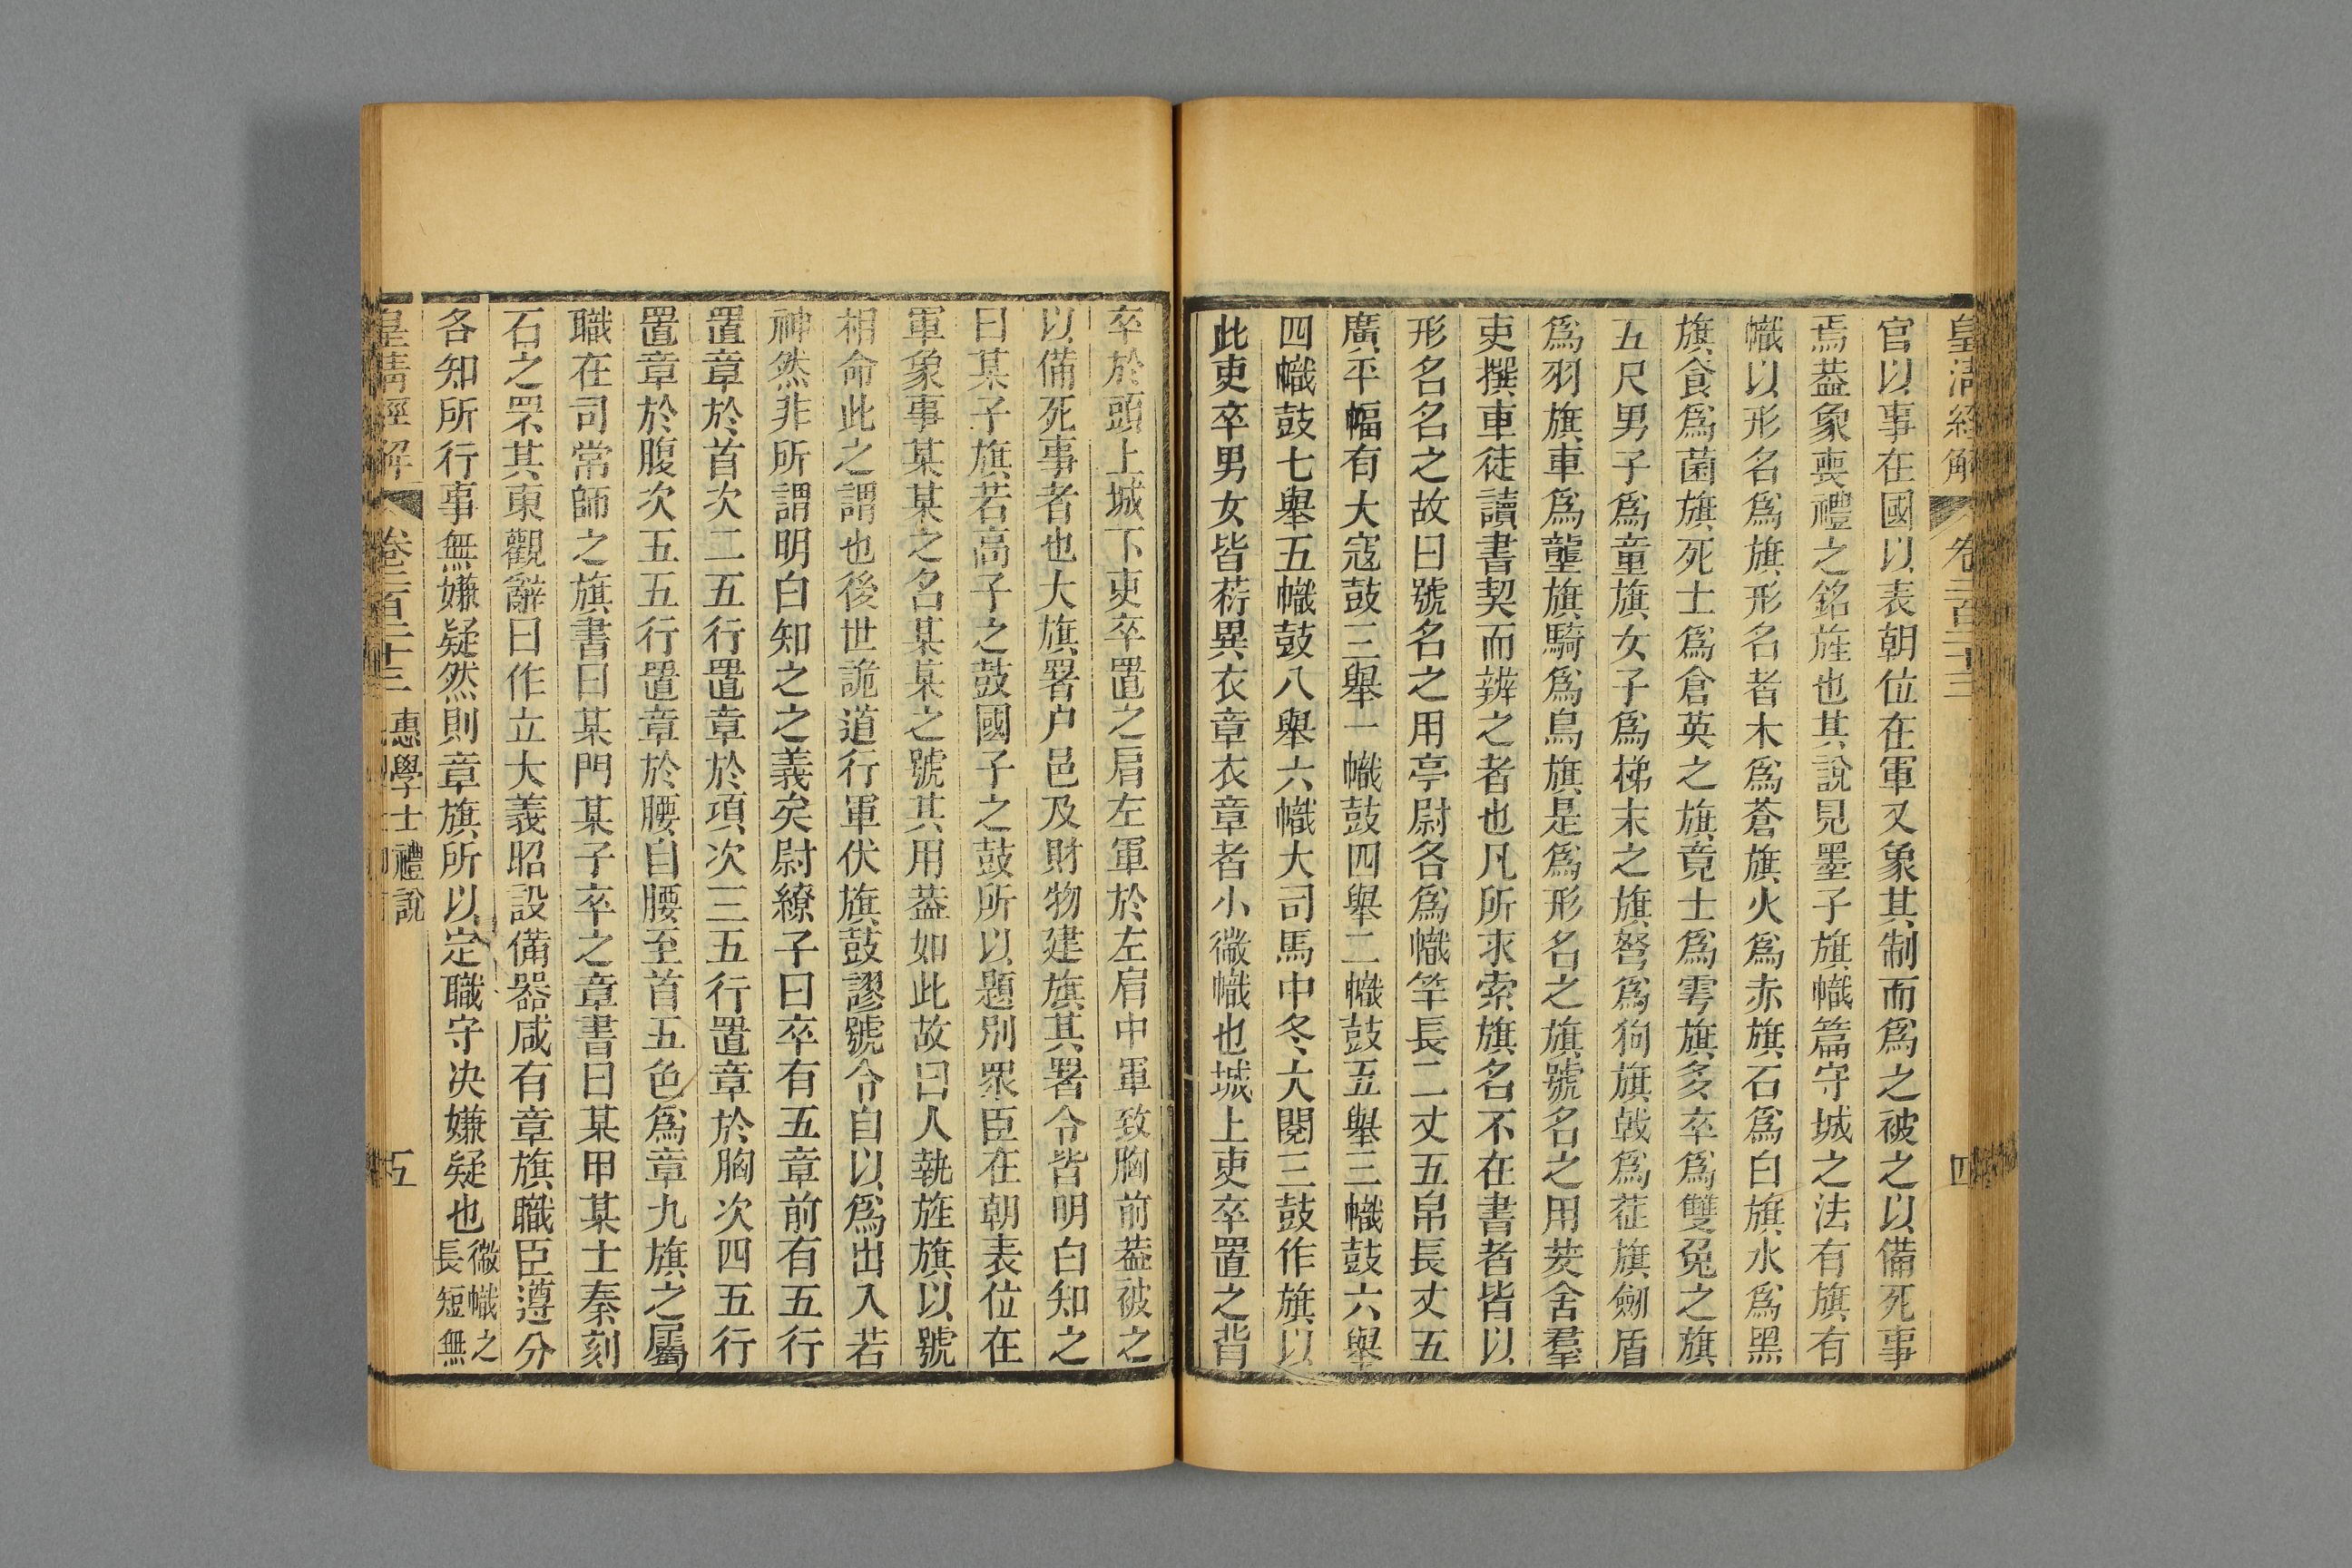 皇清經解 卷二百二十三 四
官以事在國以表朝位在軍又象其制而爲之被之以備死事
焉葢象喪禮之銘旌也其說見墨子旗幟篇守城之法有旗有
幟以形名爲旗形名者木爲蒼旗火爲赤旗石爲白旗水爲黑
旗食爲菌旗死士爲倉英之旗竟士爲雩旗多卒爲雙兔之旗
五尺男子爲童旗女子爲梯末之旗弩爲狗旗戟爲𦯔旗劒盾
爲羽旗車爲壟旗騎爲鳥旗是爲形名之旗號名之用茇舍羣
吏撰車徒讀書契而辨之者也凡所求索旗名不在書者皆以
形名名之故曰號名之用亭尉各爲幟竿長二丈五帛長丈五
廣平幅有大寇鼓三舉一幟鼓四舉二幟鼓五舉三幟鼓六舉
四幟鼓七舉五幟鼓八舉六幟大司馬中冬大閱三鼓作旗以
此吏卒男女皆荇異衣章衣章者小微幟也城上吏卒置之背
卒於頭上城下吏卒置之肩左軍於左肩中軍致胸前葢被之
以備死事者也大旗署户邑及財物建旗其署令皆明白知之
曰某子旗若高子之鼓國子之鼓所以題別眾臣在朝表位在
軍象事某某之名某某之號其用葢如此故曰人執旌旗以號
相命此之謂也後世詭道行軍伏旗鼓謬號令自以爲出入若
神然非所謂明白知之之義矣尉繚子曰卒有五章前有五行
置章於首次二五行置章於項次三五行置章於胸次四五行
置章於腹次五五行置章於腰自腰至首五色爲章九旗之屬
職在司常師之旗書曰某門某子卒之章書曰某甲某士秦刻
石之罘其東觀辭曰作立大義昭設備器咸有章旗職臣遵分
各知所行事無嫌疑然則章旗所以定職守决嫌疑也微幟之
長短無
皇清經解 卷二百二十三 惠學士禮說 五